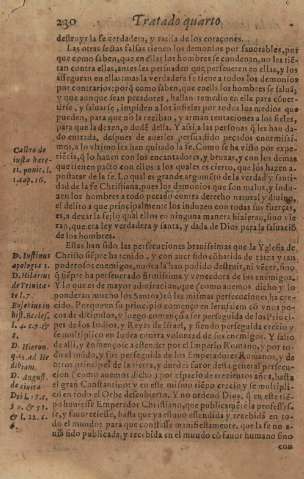 230 Tratado quarto
destruyr la fe verdadera, y raerla de los coraçones
Las otras sectas falsas tienen los demonios por fauorables, por
que como saben, que en ellas los hombres se condenan, no les tie
tan contra ellas, antes les persuaden que perseueren en ellas, y los
asseguren en ellas: mas la verdadera fe tiene a todos los demonios
por contrarios: porq como saben, que en ella los hombres se saluã,
y que aunque sean pecadores, hallan remedio en ella para
y saluarse, impiden a los infieles por todos los medios que
pueden, para que no la reciban, y arman tentaciones a los fieles,
para que la dexen, o
do entrada, despues de auer
mos, a lo vltimo les han quitado la fe. Como se ha visto por expe-
riencia, q lo hazen con los encantadores, y bruxas, y con los demas
que tienen pacto con ellos: a los quales es cierto, que los hazen a-
postatar de la fe. Lo qual es grande argumẽto de la verdad y santi-
dad de la fe Christiana, pues los demonios que son malos, y indu-
zen los hombres a todo pecado contra derecho natural y diuino,
el delito a que principalmente los inducen con todas sus fuerças,
es, a dexar la fe: lo qual ellos en ninguna manera hizieran, sino vie-
ran, que era ley verdadera y santa, y dada de Dios para la saluaciõ
de los hombres.
Castro de
iusta hære
ti. punic. l.
1. cap. 16.
Estas han sido las persecuciones brauissimas que la Yglesia de
Christo siẽpre ha tenido, y con auer sido cõbatida de tantos y tan
poderosos enemigos, nunca la han podido destruir, ni vẽcer, antes
ella siẽpre ha permanecido firmissima y vencedora de sus enemigos.
Y lo que es de mayor admiracion, que (como auemos dicho y lo
ponderan mucho los Santos) con las mismas persecuciones ha cre-
cido. Porque en su principio començò en Ierusalem cõ vnos po-
cos de dicipulos, y luego començò a ser perseguida de los Princi-
pes de los Iudios, y Reyes de Israel, y siendo perseguida crecio y
se multiplicò en Iudea contra voluntad de sus enemigos. Y salio
de alli, y començò a estenderse por el Imperio Romano, y por to-
do el mundo, y fue perseguida de los Emperadores Romanos, y de
otros principes de la tierra, y duroles
cion (como auemos dicho) por espacio de trezientos años, hasta
el gran Constantino: y en este mismo tiẽpo crecio y se multipli-
cò en todo el Orbe descubierto. Y no ordenò Dios, que en este tiẽ-
po huuiesse Emperador Christiano, que publicamẽte la professas-
se, y fauoreciesse, hasta que ya estuuo estendida y recebida en to-
do el mundo: para que constasse manifiestamente, que la fe no a-
uia sido publicada, y recebida en el mundo cõ fauor humano sino
con
D. Iustinus
apologia 1.
D. Hilarius
de Trinita-
te l. 7.
Eusebius in
hist. Eccles.
l. 4. c. 7. &
8.
D. Hieron.
D. August.
de ciuita.
Dei l. 18.
c. 50. & 51.
& l. 22. c.